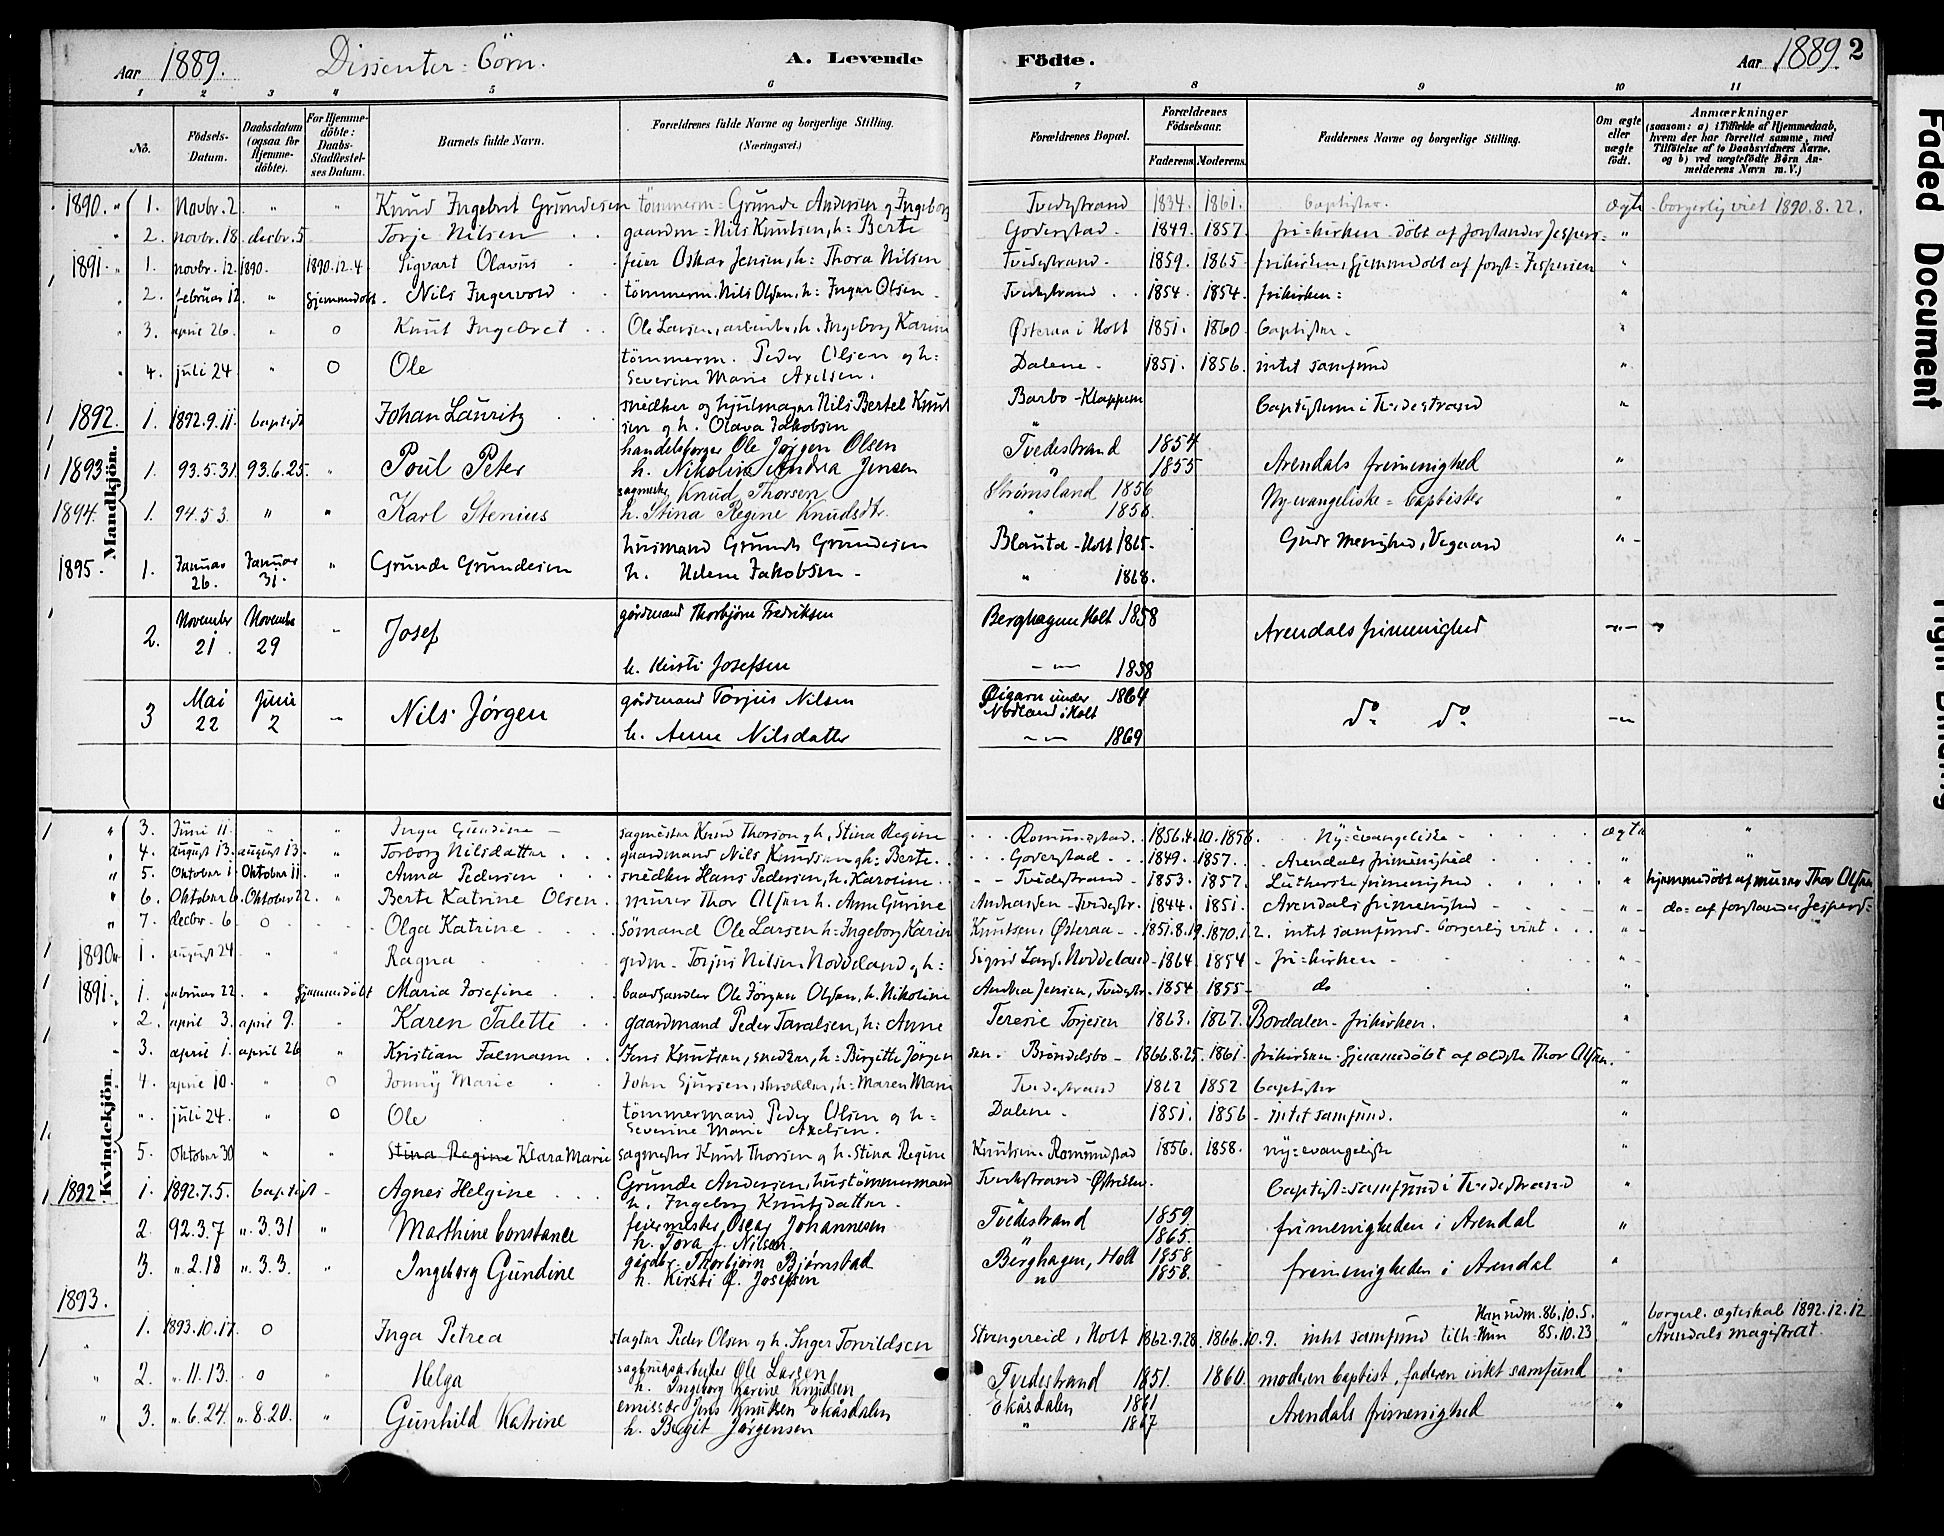 Aar 1889. Dissenter=börn. A. Levende Födte. Aar 1889. 2
1 2 3 4 5 6 7 8 9 10 11
No. Födsels-Datum. Daabsdatum (ogsaa for Hjemmedöbte). For Hjemmedöbte: Daabs-Stadfæstelses Datum. Barnets fulde Navn. Forældrenes fulde Navne og borgerlige Stilling. (Næringsvei.) Forældrenes Bopæl. Forældrenes Födselsaar. Faderens. Moderens. Faddernes Navne og borgerlige Stilling. Om ægte eller uægte födt. Anmærkninger (saasom: a) i Tilfælde af Hjemmedaab, hvem der har forrettet samme, med Tilföielse af to Daabsvidners Navne, og b) ved uægtefödte Börn Anmelderens Navn m. V.)
Mandkjön.
1890. " 1. Novbr. 2 " " Knud Ingebret Grundesen tömmerm= Grunde Andersen og Ingeborg Tvedestrand 1834. 1861. baptister. ægte borgerlig viet 1890.8.22.
" 2. novbr. 18. decbr. 5 Torje Nilsen gaardm= Nils Knutsen, h= Berte Goderstad 1849. 1857. fri=kirken. döbt af forstander Jespers= "
1891. " 1. novbr. 12. 1890. 1890.12.4. Sigvart Olavus feier Oskar Jensen, h: Thora Nilsen Tvedestrand. 1859. 1865. frikirken, hjemmedöbt af forst= Jespersen "
" 2. februar 12 " hjemmedöbt. Nils Ingervold tömmerm. Nils Olsen, h= Inger Olsen. Tvedestrand 1854. 1854. frikirken: "
" 3. april 26. " o Knut Ingebret Ole Larsen, arbeider, h. Ingeborg Karine Østeraa i Holt 1851. 1860. baptister. "
" 4. juli 24 " o Ole tömmerm. Peder Olsen og h= Dalene. 1851. 1856. intet samfund "
Severine Marie Axelsen.
1892. 1. 1892.9.11. baptist Johan Lauritz snedker og hjulmager Nils Bertel Knut Barbo-Kloppene baptisterne i Tvedestrand "
sen og h. Olava Jakobsen "
1893 1. 93.5.31. 93.6.25. " Poul Peter handelsborger Ole Jørgen Olsen Tvedestrand 1854 Arendals frimenighed "
h. Nikoline Andrea Jensen " 1855
1894. 1. 94.5.3. " " Karl Stenius sagmester Knud Thorsen Strømsland 1856 Ny evangeliske=baptister "
h. Stina Regine Knudsdtr. " 1858.
1895. 1. Januar 26. Januar 31. " Grunde Grundesen husmand Grunde Grundesen Blauta-Holt 1865. Guds Menighed, Vegaard "
h. Helene Jakobsen " 1868.
2. November 21 November 29 " Josef gårdmand Thorbjörn Fredriksen Berghagen Holt 1858 Arendals frimenighed "
h. Kirsti Josefsen " 1858
3 Mai 22 Juni 2 " Nils Jørgen gårdmand Torjus Nilsen Øigarn under Nodland i Holt 1864 do do "
h. Anne Nilsdatter " 1869
Kvindekjön.
" 3. Juni 11. " " Inga Gundine sagmester Knud Thorson og h, Stina Regine Romundstad. 1856.4. 10. 1858. Ny=evangeliske ægte "
" 4. august 13. august 13. " Torborg Nilsdatter gaardmand Nils Knudsen og h= Berte. Goderstad 1849. 1857. Arendals frimenighed " "
" 5. Oktober 1 Oktober 11. " Anna Pedersen snedker Hans Pedersen, h. Karoline Tvedestrand 1853. 1857. Lutherske frimenighed " hjemmedöbt af murer Thor Olsen
" 6. Oktober 6. Oktober 22. " Berte Katrine Olsen. murer Thor Olsen h. Anne Gurine Andreassen-Tvedestr. 1844. 1851. Arendals frimenighed " do= af forstander Jespers=
" 7. decbr. 6 o Olga Katrine Sömand Ole Larsen h= Ingeborg Karin Knutsen, Østeraa 1851.8.19. 1870.1.2. intet samfund. borgerlig viet "
1890. 1. august 24 " " Ragna grdm. Torjus Nilsen Noddeland og h= Sigrid Lars. Noddeland 1864. 1854 fri=kirken "
1891. 1. februar 22. " hjemmedöbt Maria Josefine baadsander Ole Jörgen Olsen, h. Nikoline Andrea Jensen, Tvedestr. 1854 1855 do "
" 2. april 3. april 9. " Karen Talette gaardmand Peder Taralsen, h: Anne Terese Torjesen 1863. 1867. Bordalen-frikirken. "
3. april 1. april 26 " Kristian Talmann Jens Knutsen, snedker, h= Birgitte Jörgen sen. Bröndelsbo 1866.8.25. 1861. frikirken. hjemmedöbt af ældste Thor Olsen. "
" 4. april 10. " o Jonny Marie John Gjursen, skrædder, h= Maren Marie Tvedestrand 1862 1852 baptister "
" juli 24. " o Ole tömmermand Peder Olsen og h= Dalene 1851. 1856 intet samfund. "
Severine Marie Axelsen.
5. Oktober 30 " " Stina Regine Klara Marie sagmester Knut Thorsen og h. Stina Regine Knutsen. Romundstad 1856. 1858. ny=evangeliste "
1892 1. 1892.7.5. baptist Agnes Helgine Grunde Andersen, hustömmermand Tvedestrand-Østre baptist=samfund i Tvedestrand "
h. Ingeborg Knutsdatter.
2. 92.3.7 ". 3.31 " Marthine Constance feiermester Oscar Johannesen Tvedestrand 1859. frimenigheden i Arendal "
h. Tora f. Nilsen " 1865.
3. ". 2.18 ". 3.3. " Ingeborg Gundine gårdbr. Thorbjörn Bjørnstad Berghagen, Holt 1858 frimenigheden i Arendal "
h. Kirsti f. Josefsen " 1858.
1893.
1. 1893.10.17. o Inga Petrea slagter Peder Olsen og h. Inger Torvildsen Strengereid, Holt 1862.9.28. 1866.10.9. intet samfund tilh. Han udm. 86.10.5. Hun 85.10.23 " borgerl. ægteskab 1892.12.12 Arendals magistrat.
" 2. ". 11.13. o " Helga sagbrugsarbeider Ole Larsen Tvedestrand 1851. 1860. moderen baptist, faderen intet samfund "
h. Ingeborg Karine Knudsen
" 3. ". 6.24. ". 8.20. " Gunhild Katrine emissær Jens Knutsen Ekåsdalen Ekåsdalen 1861 Arendals frimenighed "
h. Begit Jørgensen " 1867
Faded Document
Tight Binding